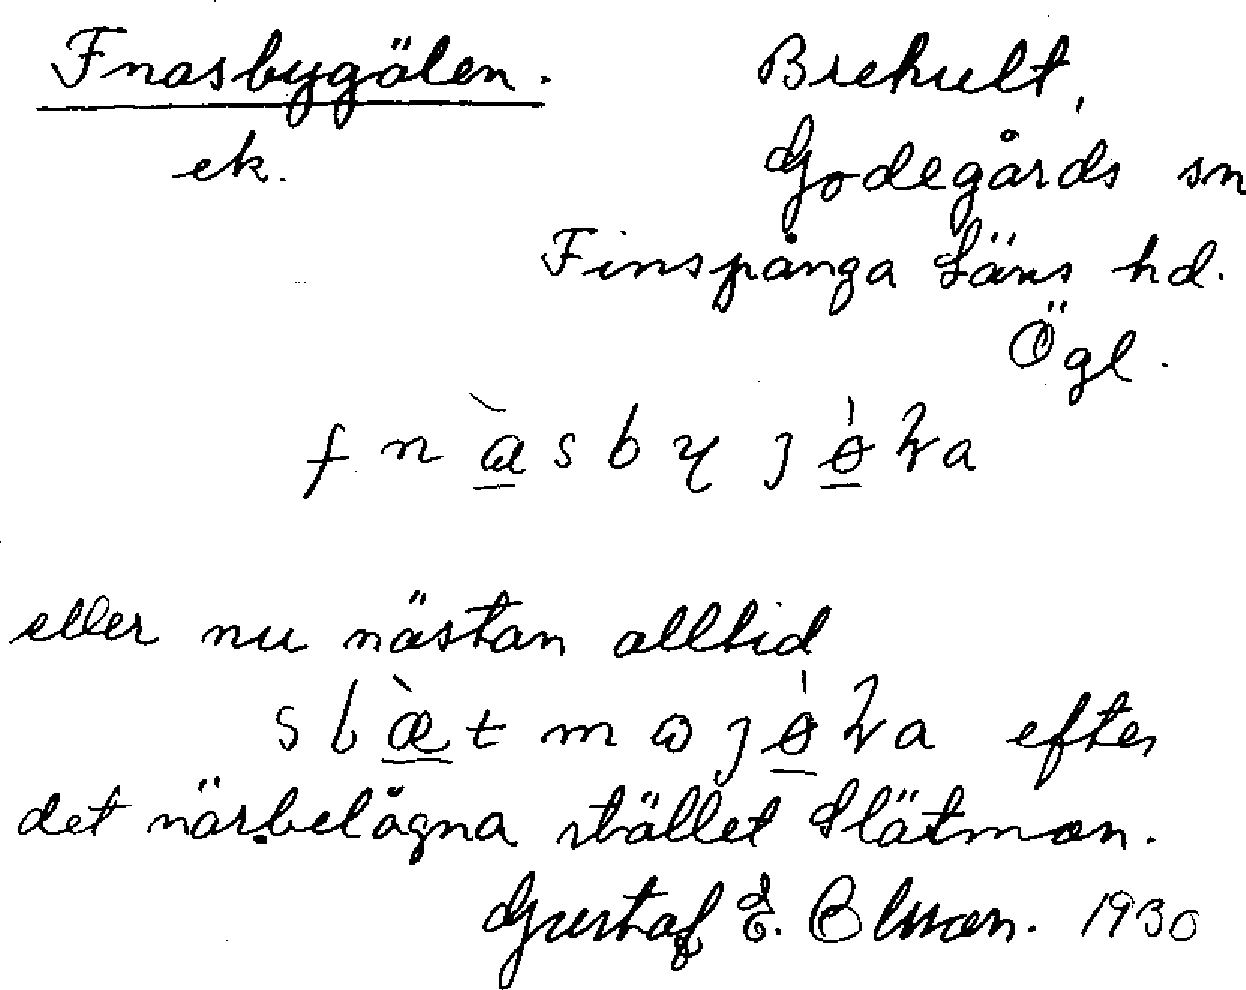 Fnasbygölen.
Brehult,
ek.
Godegårds sn
Finspånga Läns hd.
Ögl.
eller nu nästan alltid
efter
det närbelägna stället Slätmon.
Gustaf E. Olsson. 1930